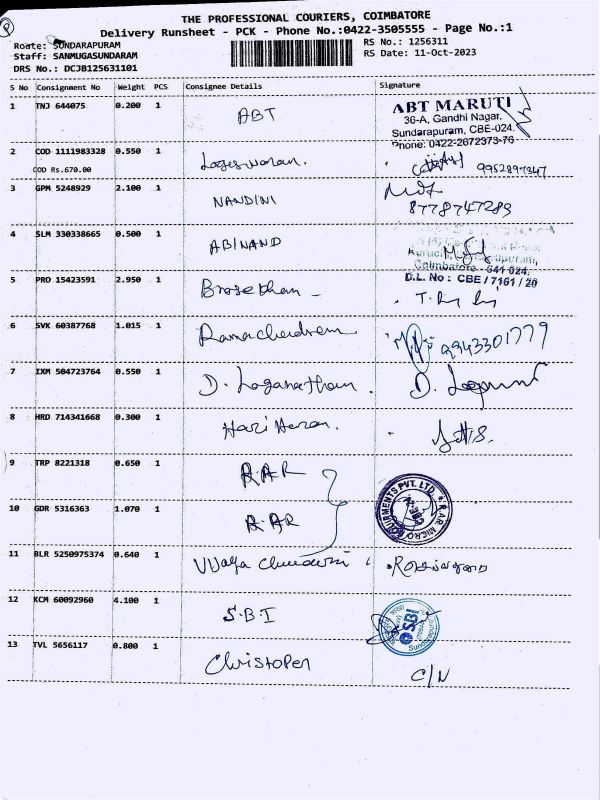 THE PROFESSIONAL COURIERS, COIMBATORE
Delivery Runsheet - PCK - Phone No.:0422-3505555 - Page No.:1
Roate: SUNDARAPURAM
RS No.: 1256311
Staff: SANMUGASUNDARAM
RS Date: 11-Oct-2023
DRS No.: DCJB125631101
S No Consignment No Weight PCS Consignee Details Signature
1 TNJ 644075 0.200 1 ABT
ABT MARUTI
36-A, Gandhi Nagar,
Sundarapuram, CBE-024.
Phone: 0422-2672373-76
2 COD 1111983328 0.550 1 Logeswaran. 9952897347
COD Rs.670.00
3 GPM 5248929 2.100 1 NANDINI
8778747289
4 SLM 330338665 0.500 1 ABINAND
Coimbatore - 641 024.
D.L. No : CBE / 7161 / 20
5 PRO 15423591 2.950 1
6 SVK 60387768 1.015 1 9943301779
7 IXM 504723764 0.550 1 D. Loganathan.
8 HRD 714341668 0.300 1 Hari Haran.
9 TRP 8221318 0.650 1 R.AR
10 GDR 5316363 1.070 1 R.AR
11 BLR 5250975374 0.640 1
12 KCM 60092960 4.100 1 S.B.I
SBI
13 TVL 5656117 0.800 1 Christoper C/N